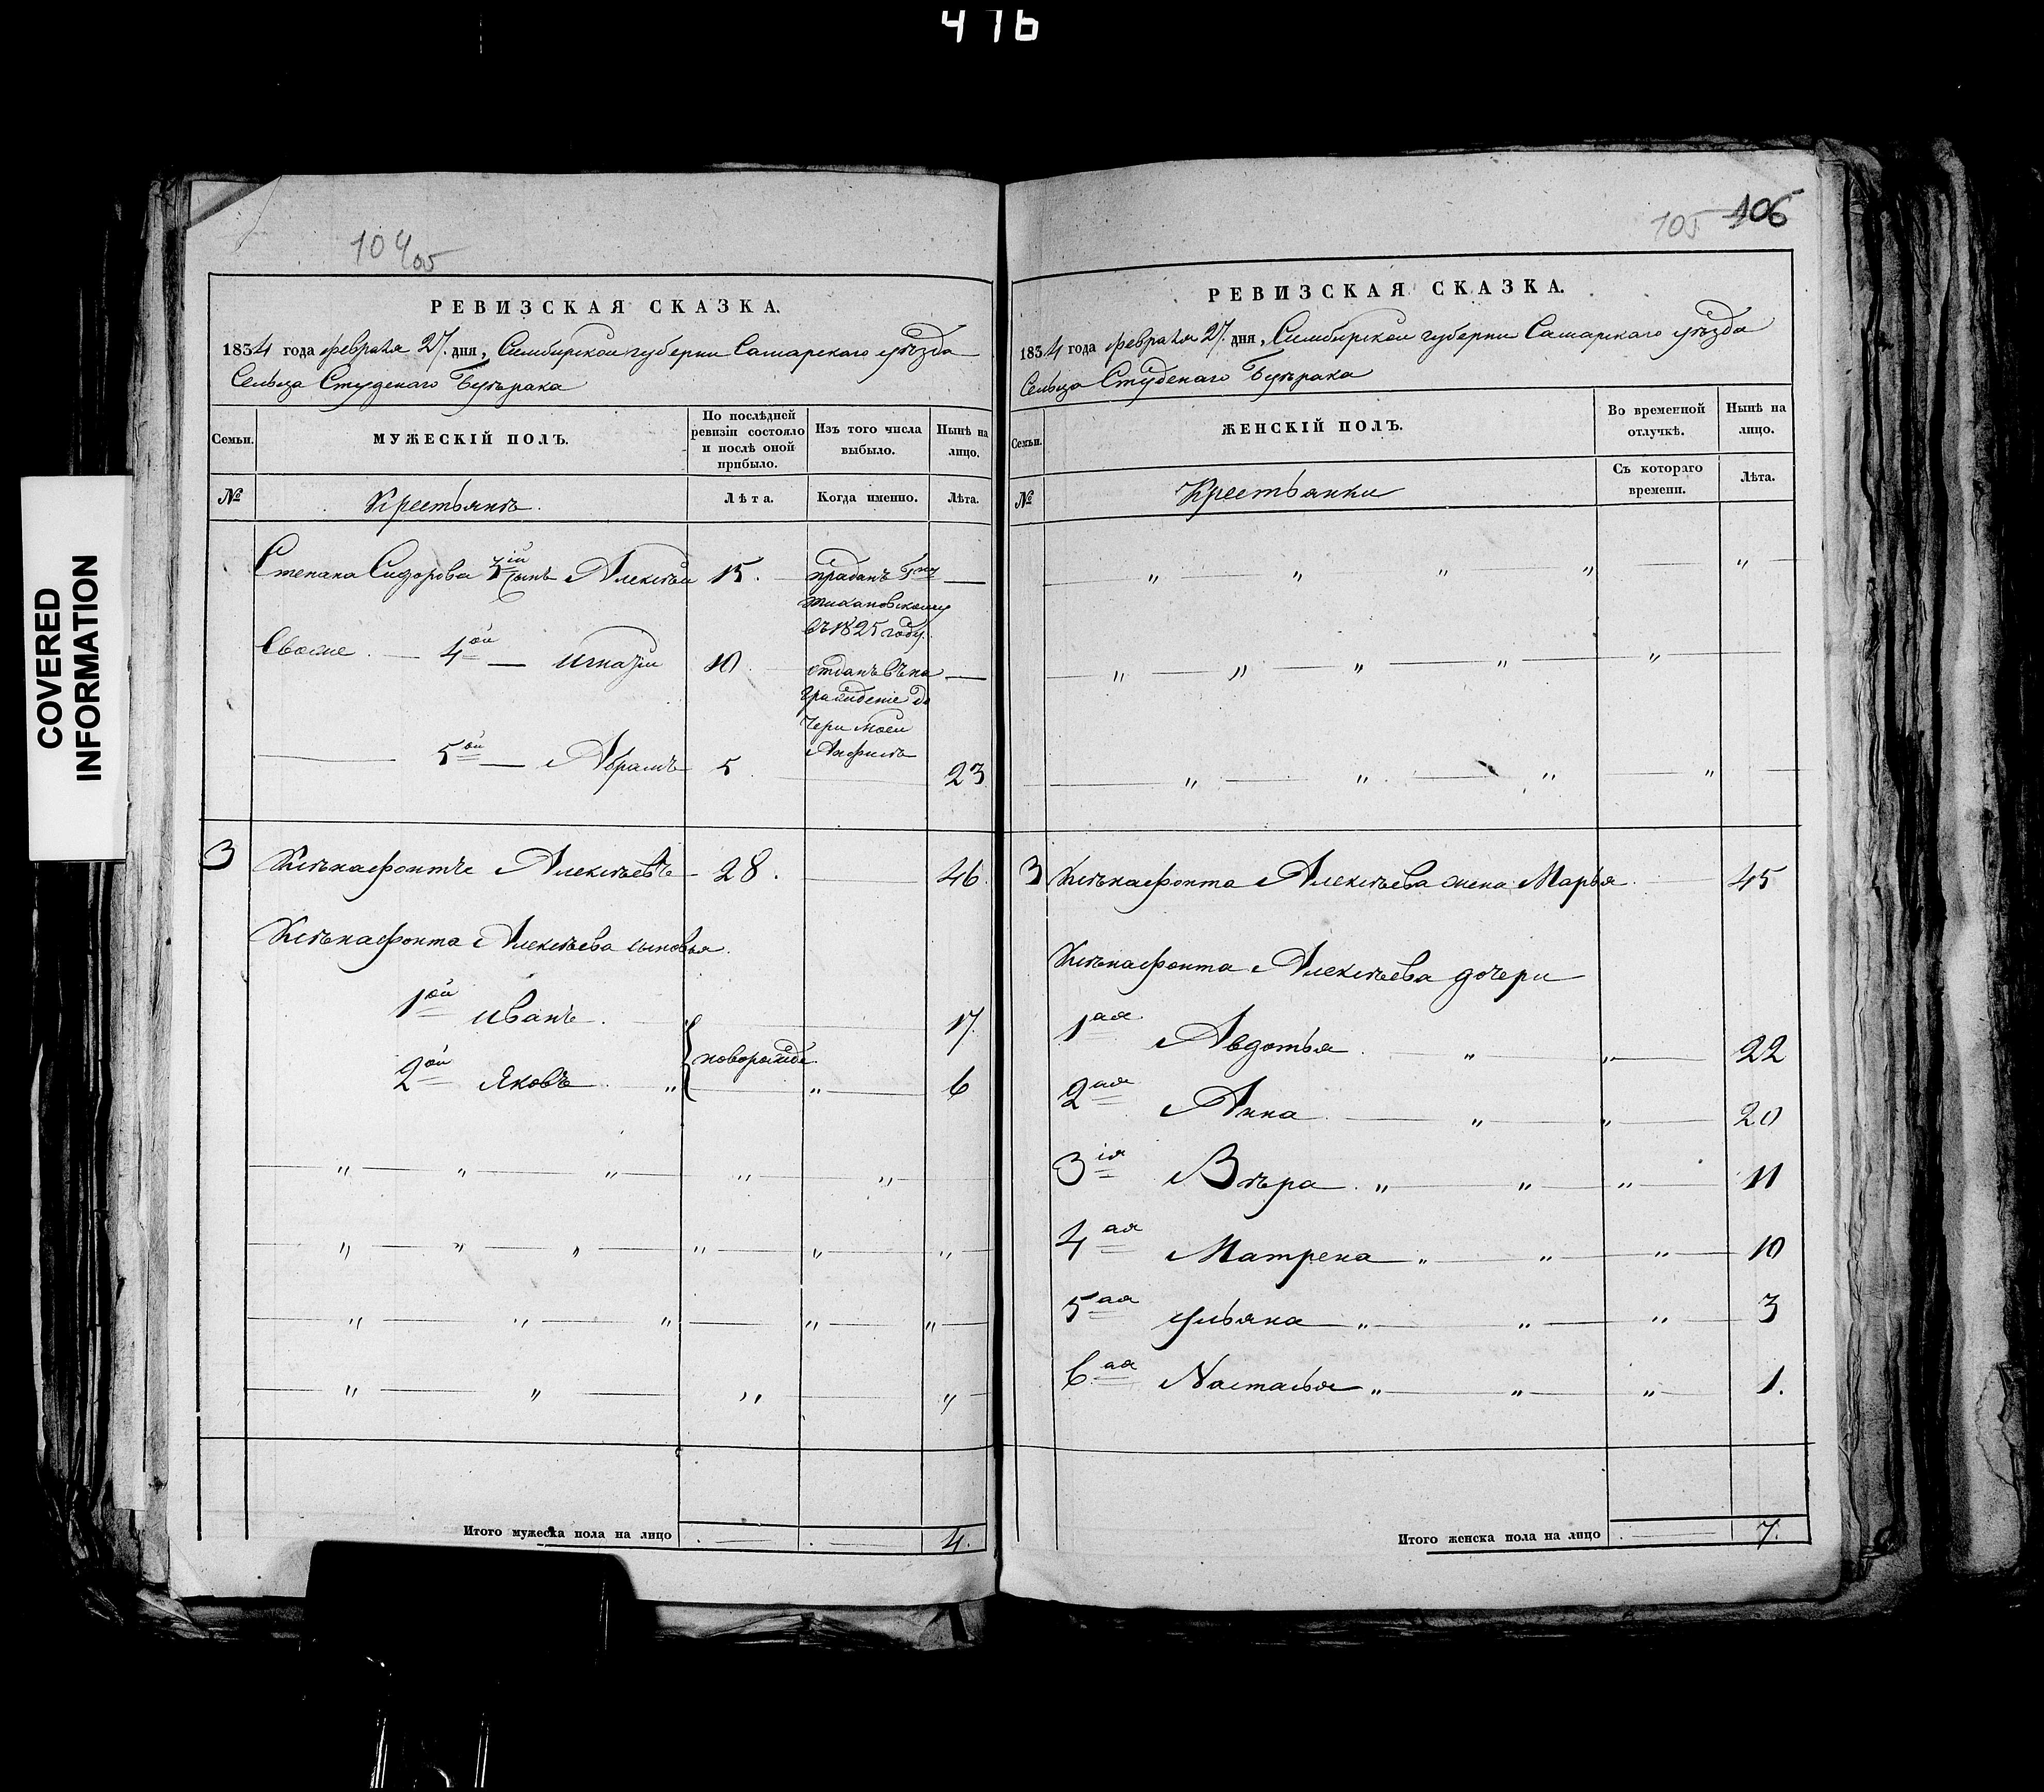 416
COVERED
INFORMATION
104
105
РЕВИЗСКАЯ СКАЗКА.
1834 года февраля 27. дня, Симбирской губернии Самарского уѣзда
Сельца Студенаго Буерака
Семьи.
МУЖЕСКІЙ ПОЛЪ.
По послѣдней
ревизіи состояло
и послѣ оной
прибыло.
Изъ того числа
выбыло.
Нынѣ на
лицо.
№
Крестьянъ.
Лѣта.
Когда именно.
Лѣта.
Степана Сидорова 3ій сынъ Алексѣй 15.
проданъ Гну
в 1825 году.
Своже 4ой Игнатій 10
отданъ въ на
граждение до
чери моей
5ой Абрамъ 5 23
3 Ксѣнафонтъ Алексѣевъ 28. 46.
Ксѣнафонта Алексѣева сыновья.
1ой Иванъ. 17.
новорожде.
2ой Яковъ " " 6
Итого мужеска пола на лицо 4.
105 106
РЕВИЗСКАЯ СКАЗКА.
1834 года февраля 27. дня, Симбирской губернии Самарскаго уѣзда
Сельца Студенаго Буерака
Семьи.
ЖЕНСКІЙ ПОЛЪ.
Во временной
отлучкѣ.
Нынѣ на
лицо.
№
Крестьянки
Съ котораго
времени.
Лѣта.
3 Ксѣнафонта Алексѣева жена Марья 45
Ксѣнафонта Алексѣева дочери
1ая Авдотья " " 22
2ая Анна " " 20
3ія Вѣра " " " 11
4ая Матрена " " " 10
5ая Ульяна " " " 3
6ая Настасья " " " 1.
Итого женска пола на лицо 7.